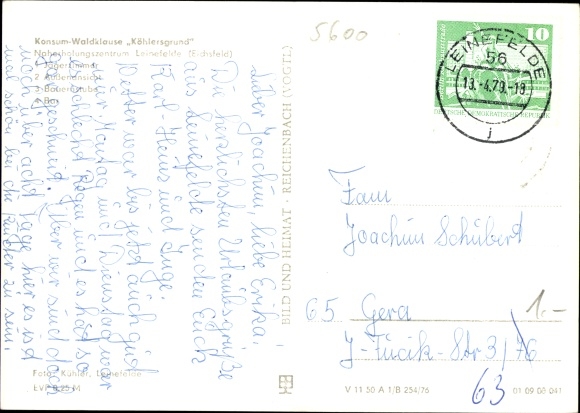 Konsum-Waldklause „Köhlersgrund"
Naherholungszentrum Leinefelde (Eichsfeld)
1 Jägerzimmer
2 Außenansicht
3 Bauernstube
4 Bar
Lieber Joachim, liebe Erika!
Die herzlichsten Urlaubsgrüße
aus Leinefelde senden Euch
Karl-Heinz und Inge.
Wetter war bis jetzt auch gut
nur Montag und Dienstag war
es schlecht Regen und es hat so
geschneit. Aber wir sind doch
noch über acht Tage hier es ist
mal schön bei zu sein.
Foto: Kühler, Leinefelde
EVP 0,25 M
BILD UND HEIMAT · REICHENBACH (VOGTL)
V 11 50 A 1/B 254/76
01 09 08 041
5600
10
DEUTSCHE DEMOKRATISCHE REPUBLIK
LEINEFELDE
56
19.-4.79.-18
j
Fam
Joachim Schubert
65 Gera
J-Fucik-Str 3/76
63
1.-